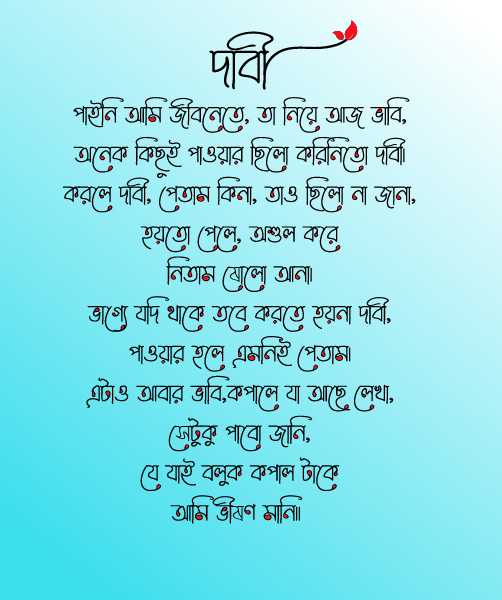 দাবী
পাইনি আমি জীবনেতে, তা নিয়ে আজ ভাবি,
অনেক কিছুই পাওয়ার ছিলো করিনিতো দাবী।
করলে দাবী, পেতাম কিনা, তাও ছিলো না জানা,
হয়তো পেলে, অশুল করে
নিতাম ষোলো আনা।
ভাগ্যে যদি থাকে তবে করতে হয়না দাবী,
পাওয়ার হলে এমনিই পেতাম।
এটাও আবার ভাবি,কপালে যা আছে লেখা,
সেটুকু পাবো জানি,
যে যাই বলুক কপাল টাকে
আমি ভীষণ মানি॥